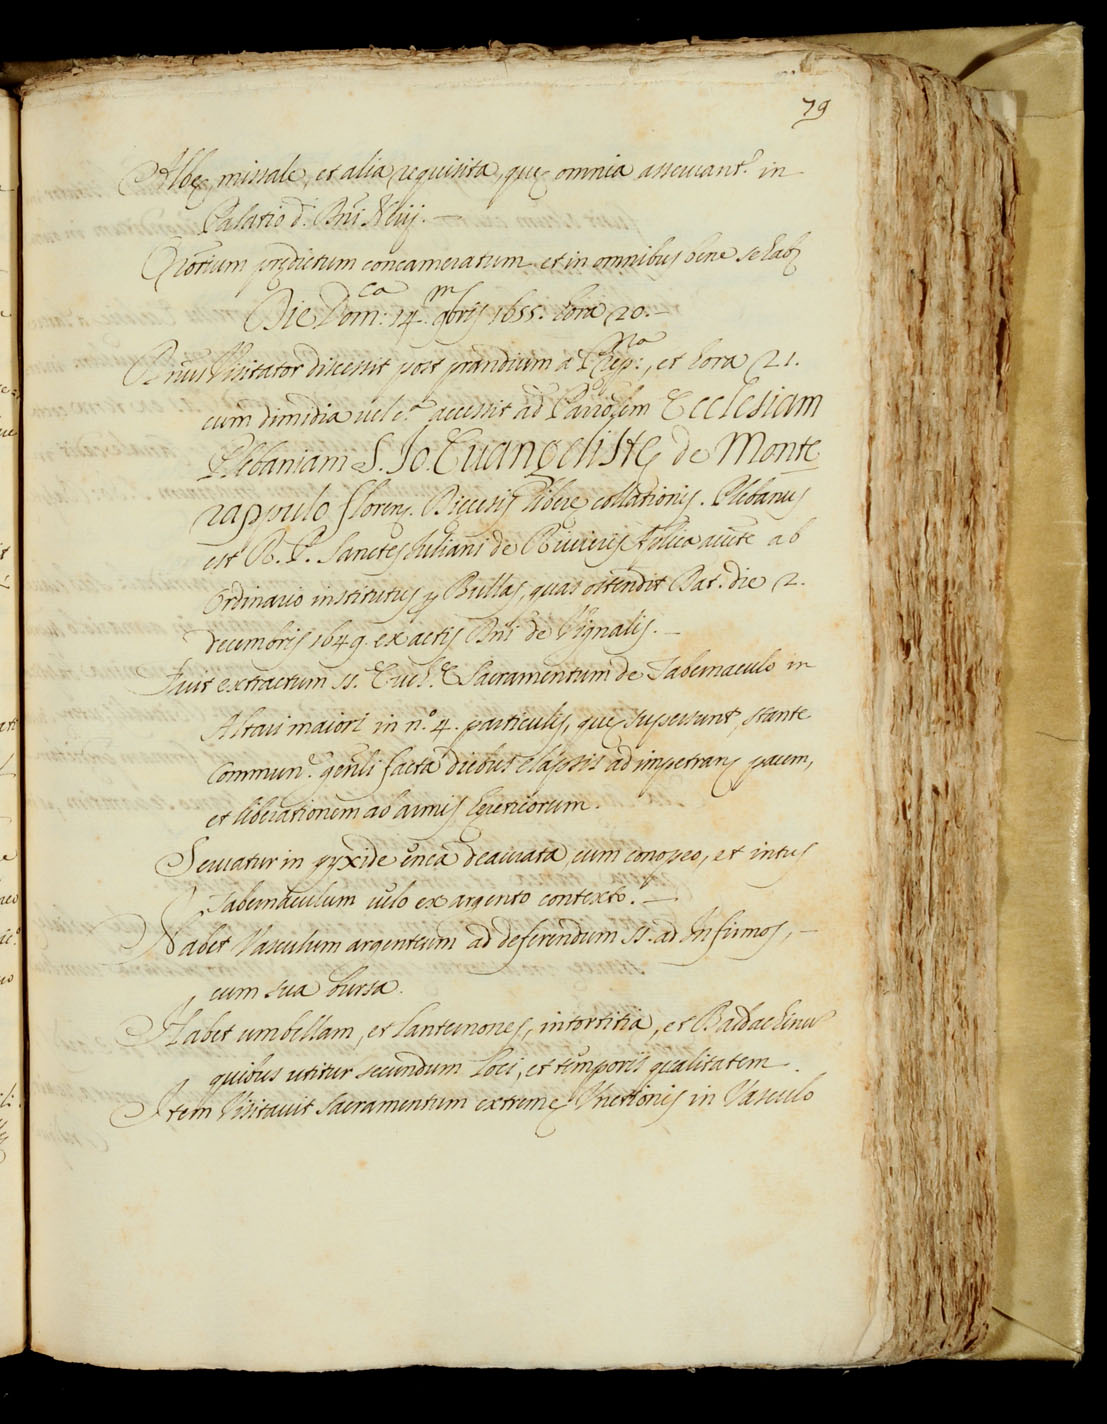 79
Albę, missale, et alia requisita, quę omnia asseruant.r in
Palatio d. Dni Nerij.
Oratorium prędictum concameratum, et in omnibus bene se habz
Die Dom:ca 14. mens 9bris 1655. hora 20.
Dnus Visitator discessit post prandium a Crep:na, et hora 21.
cum dimidia uel c.a accessit ad Parrolem Ecclesiam
Plebaniam S. Jo. Euangelistę de Monte
rappulo florenę. Diecesis liberę collationis. Plebanus
est R. P. Sanctes Iuliani de Riuierijs Aplica aucte ab
Ordinario institutus p Bullas, quas ostendit Dat. die 2.
decembris 1649. ex actis Dni de Vignalis.
Fuit extractum SS. Euch.e Sacramentum de Tabernaculo in
Altari maiori in n.o 4. particulis, quę supersunt, stante
commun.e genli facta diebus elapsis ad impetranę pacem,
et liberationem ab armis hereticorum.
Seruatur in pyxide ęnea deaurata cum conopeo, et intus
Tabernaculum uelo ex argento contexto.
Habet Vasculum argenteum ad deferendum SS. ad Infirmos,
cum sua bursa.
Habet umbellam, et lanternones, intortitia, et Baldachinu
quibus utitur secundum loci, et temporis qualitatem.
Item Visitauit sacramentum extremę Vnctionis in Vasculo